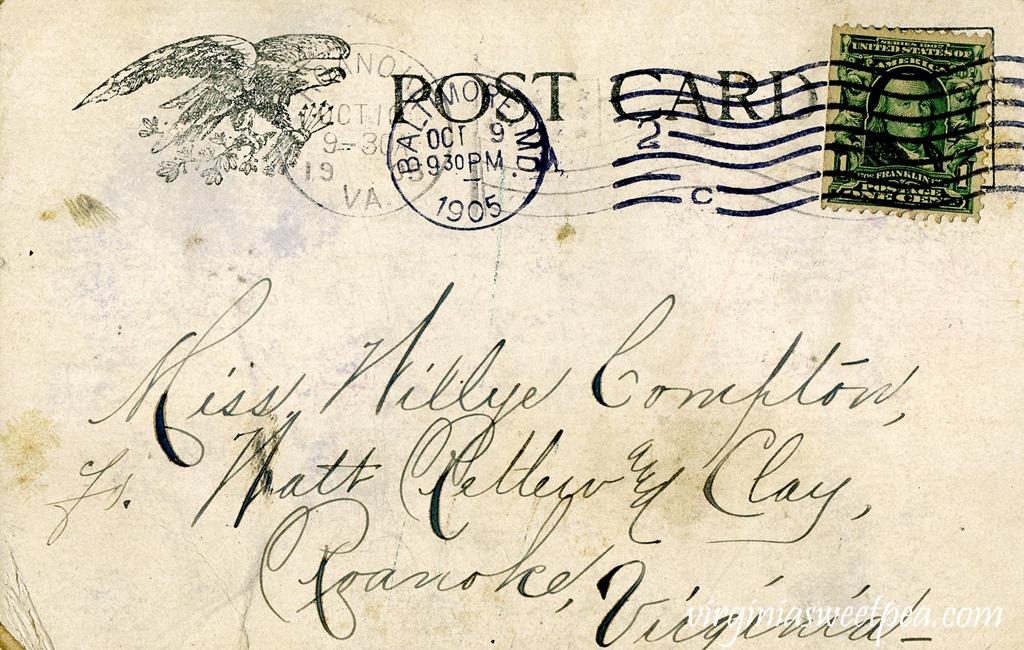 POST CARD
ROANOKE
OCT 10
9-30
1905
VA.
BALTIMORE, MD.
OCT 9
930PM
1905
2
C
SERIES 1902
UNITED STATES OF
AMERICA
1 FRANKLIN 1
POSTAGE
ONE CENT
Miss Willye Compton,
Watt Rettew & Clay,
Roanoke, Virginia
virginiasweetpea.com